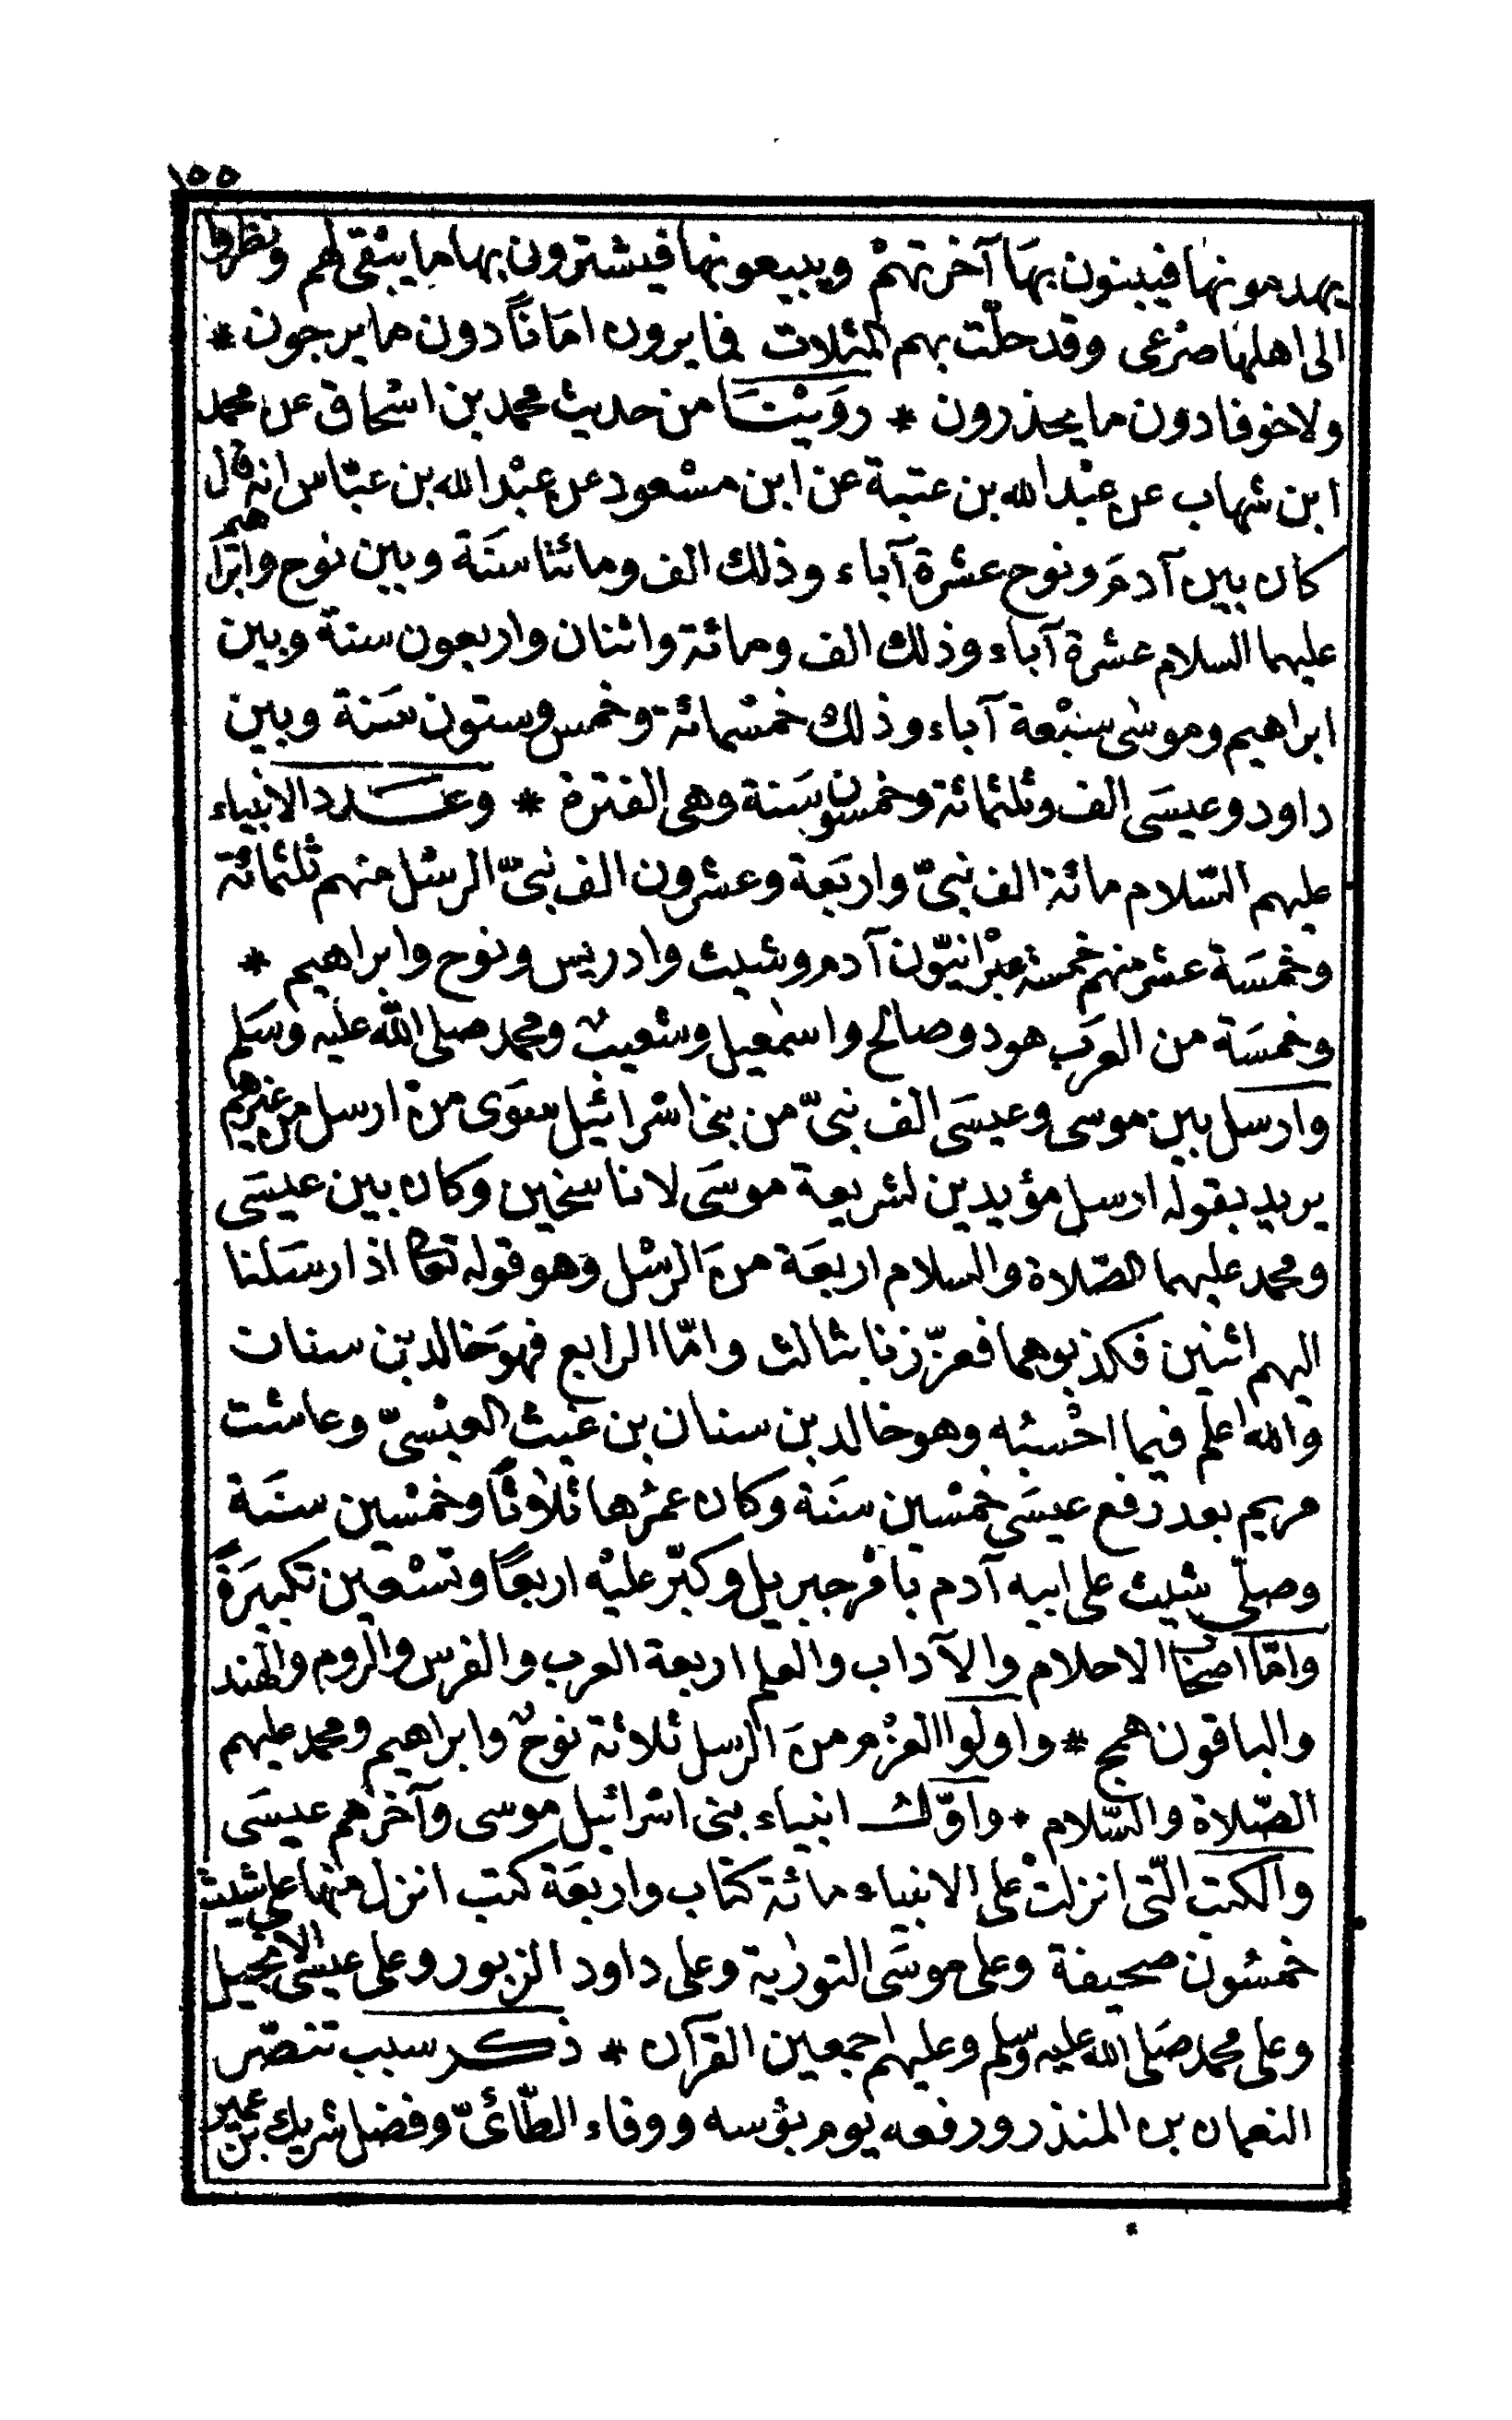 ١٥٥
يهدمونها فيبنون بهَا آخرتهمْ ويبيعونها فيشترون بها ما يبْقى لهم ونظروا
الى اهلها صرْعى وقد حلّت بهم المثلات فما يرون امَاناً دون ما يرجون *
ولا خوفا دون ما يحذرون * روَيْنَا من حديث محمد بن اسْحاق عن محمد
ابن شهاب عن عبْد الله بن عتبة عن ابن مسْعود عن عبْد الله بن عبّاس انه قال
كان بين آدمَ ونوح عشرة آباء وذلك الف ومائتا سَنَة وبين نوح وابْراهيم
عليهما السلام عشرة آباء وذلك الف ومائة واثنان واربعون سنة وبين
ابراهيم وموسٰى سبْعة آباء وذلك خمسْمائة وخمس وستون سَنة وبين
داود وعيسَى الف وثلثمائة وخمسون سَنة وهى الفترة * وعدد الانبياء
عليهم السّلام مائة الف نبىّ واربَعة وعشرون الف نبىّ الرسْل منهم ثلثمائة
وخمسَة عشر منهم خمسة عبْرانيّون آدم وشيث وادريس ونوح وابراهيم *
وخمسَة من العرَب هود وصالح واسمٰعيل وشعيبٌ ومحمد صلى الله عليه وسَلم
وارسل بين موسى وعيسَى الف نبىّ من بنى اسْرائيل سوَى من ارسل من غيرهم
يريد بقوله ارسل مؤيدين لشريعة موسَى لا ناسخين وكان بين عيسَى
ومحمد عليهما الصّلاة والسلام اربعَة منَ الرسْل وهو قوله تعالى اذ ارسَلنا
اليهم اثنين فكذبوهما فعزّزنا بثالث وامّا الرابع فهوَ خالد بن سنان
والله اعلم فيما احْسبُه وهو خالد بن سنان بن غيث العبْسىّ وعاشت
مريم بعد رفع عيسَى خمسْين سنَة وكان عمْرها ثلاثاً وخمسْين سنَة
وصلّى شيث على ابيه آدم بامْر جبريل وكبّر عليْه اربعًا وتسْعين تكبيرَةً
وامّا اصحاب الاحلام والآداب والعلم اربعة العرب والفرس والروم والهند
والباقون همج * واولوا العزْم منَ الرسل ثلاثة نوحٌ وابراهيم ومحمد عليهم
الصّلاة والسّلام * واوّل انبياء بنى اسْرائيل موسى وآخرهم عيسَى
والكتب الّتى انزلتْ على الانبياء مائة كتاب واربعَة كتب انزل منها على شيث
خمسْون صحيفة وعلى موسَى التورٰية وعلى داود الزبور وعلى عيسٰى الانجيل
وعلى محمد صَلى الله عليه وسلم وعليهم اجمعين القرآن * ذكر سبب تنصّر
النعمان بن المنذر ورفعه يوم بؤسه ووفاء الطّائىّ وفضل شريك بن عمير